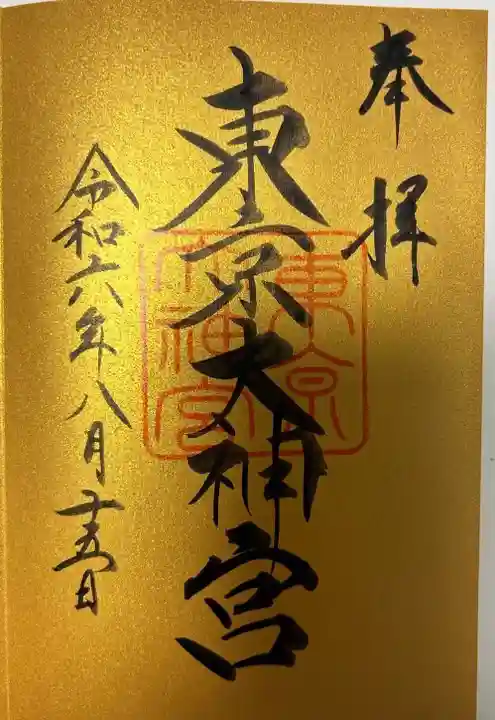 奉拝
東京大神宮
令和六年八月十五日
東京
大神宮